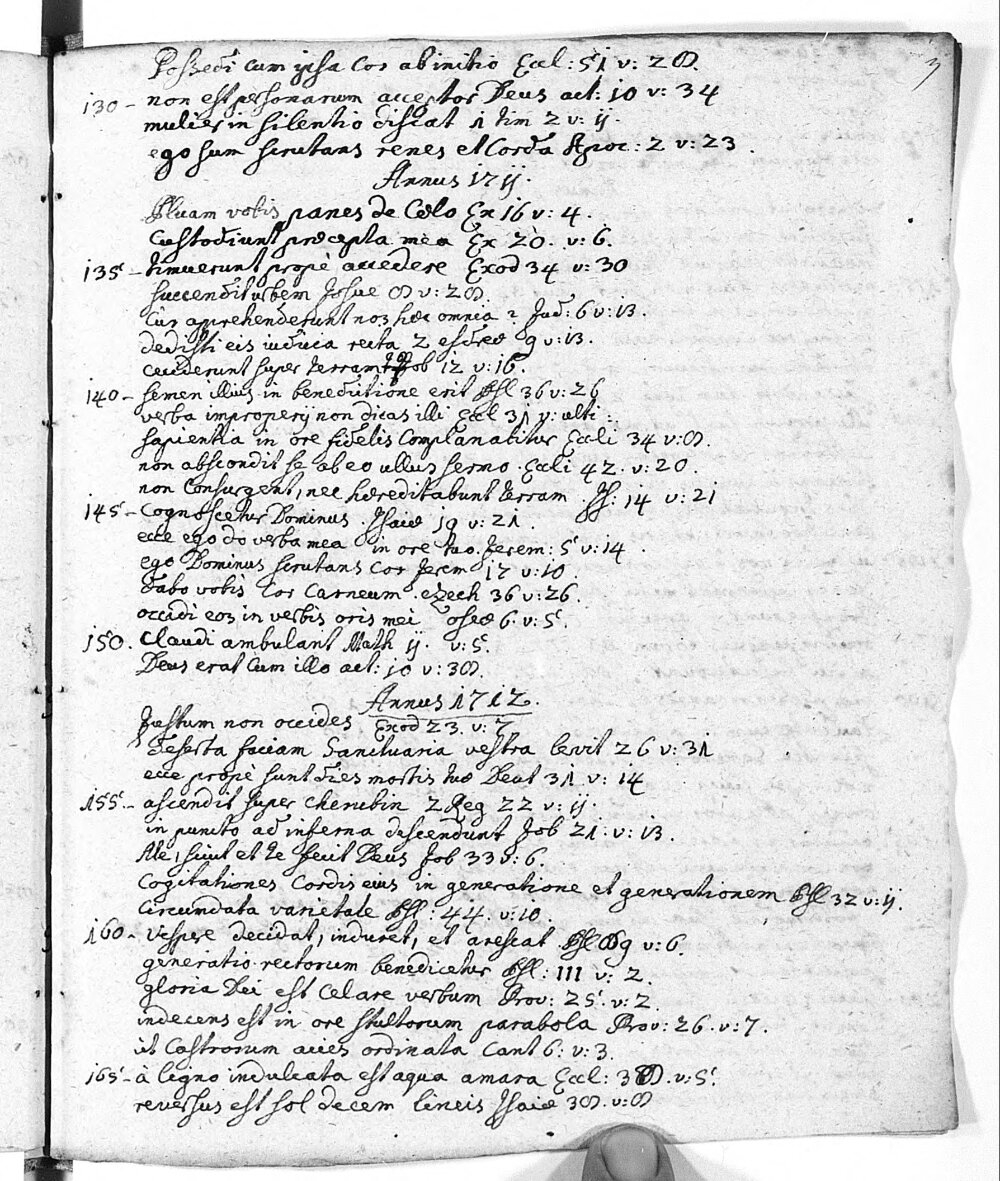 3
Possedi cum ipsa Cor ab initio Eccl: 51 v: 28.
130 - non est personarum acceptor Deus act: 10 v: 34
mulier in silentio discat 1 tim 2 v: ij.
ego sum scrutans renes et Corda Apoc: 2 v: 23.
Annus 17ij.
Pluam vobis panes de Cœlo Ex 16 v: 4.
Custodiunt præcepta mea Ex 20. v: 6.
135 - timuerunt propè accedere Exod 34 v: 30
succendit urbem Josue 8 v: 28.
Cur aprehenderunt nos hæc omnia? Jud: 6 v: 13.
dedisti eis iudicia recta 2 esdræ 9 v: 13.
ceciderunt super terram Job 12 v: 16.
140 - semen illius in benedictione erit Psl 36 v: 26
verba improperij non dicas illi Eccl 31 v: ulti:
sapientia in ore fidelis Complanabitur Eccli 34 v: 8.
non abscondit se ab eo ullus sermo. Eccli 42. v: 20.
non Consurgent, nec hæreditabunt terram. Js: 14 v: 21
145 - Cognoscetur Dominus. Jsaiæ 19 v: 21.
ecce ego do verba mea in ore tuo. Jerem: 5 v: 14.
ego Dominus scrutans Cor Jerem 17 v: 10.
dabo vobis Cor Carneum. ezech 36 v: 26.
occidi eos in verbis oris mei oseæ 6. v: 5.
150. Claudi ambulant Math ij. v: 5.
Deus erat Cum illo act: 10 v: 38.
Annus 1712.
Justum non occides Exod 23. v: 7
deserta faciam Sanctuaria vestra levit 26 v: 31
ecce propè sunt dies mortis tuæ Deut 31 v: 14
155 - ascendit super cherubin 2 Reg 22 v: ij.
in puncto ad inferna descendunt Job 21. v: 13.
Me, sicut et te fecit Deus Job 33 v: 6.
Cogitationes Cordis eius in generatione et generationem Psl 32 v: ij.
Circumdata varietate Psl: 44. v: 10.
160 - Vespere decidat, induret, et arescat Psl 89 v: 6.
generatio rectorum benedicetur Psl: 111 v: 2.
gloria Dei est Celare verbum Prov: 25. v: 2.
indecens est in ore stultorum parabola Prov: 26. v: 7.
ut Castrorum acies ordinata Cant 6. v: 3.
165 - à ligno indulcata est aqua amara Eccl: 38. v: 5.
reversus est sol decem lineis Jsaiæ 38. v: 8